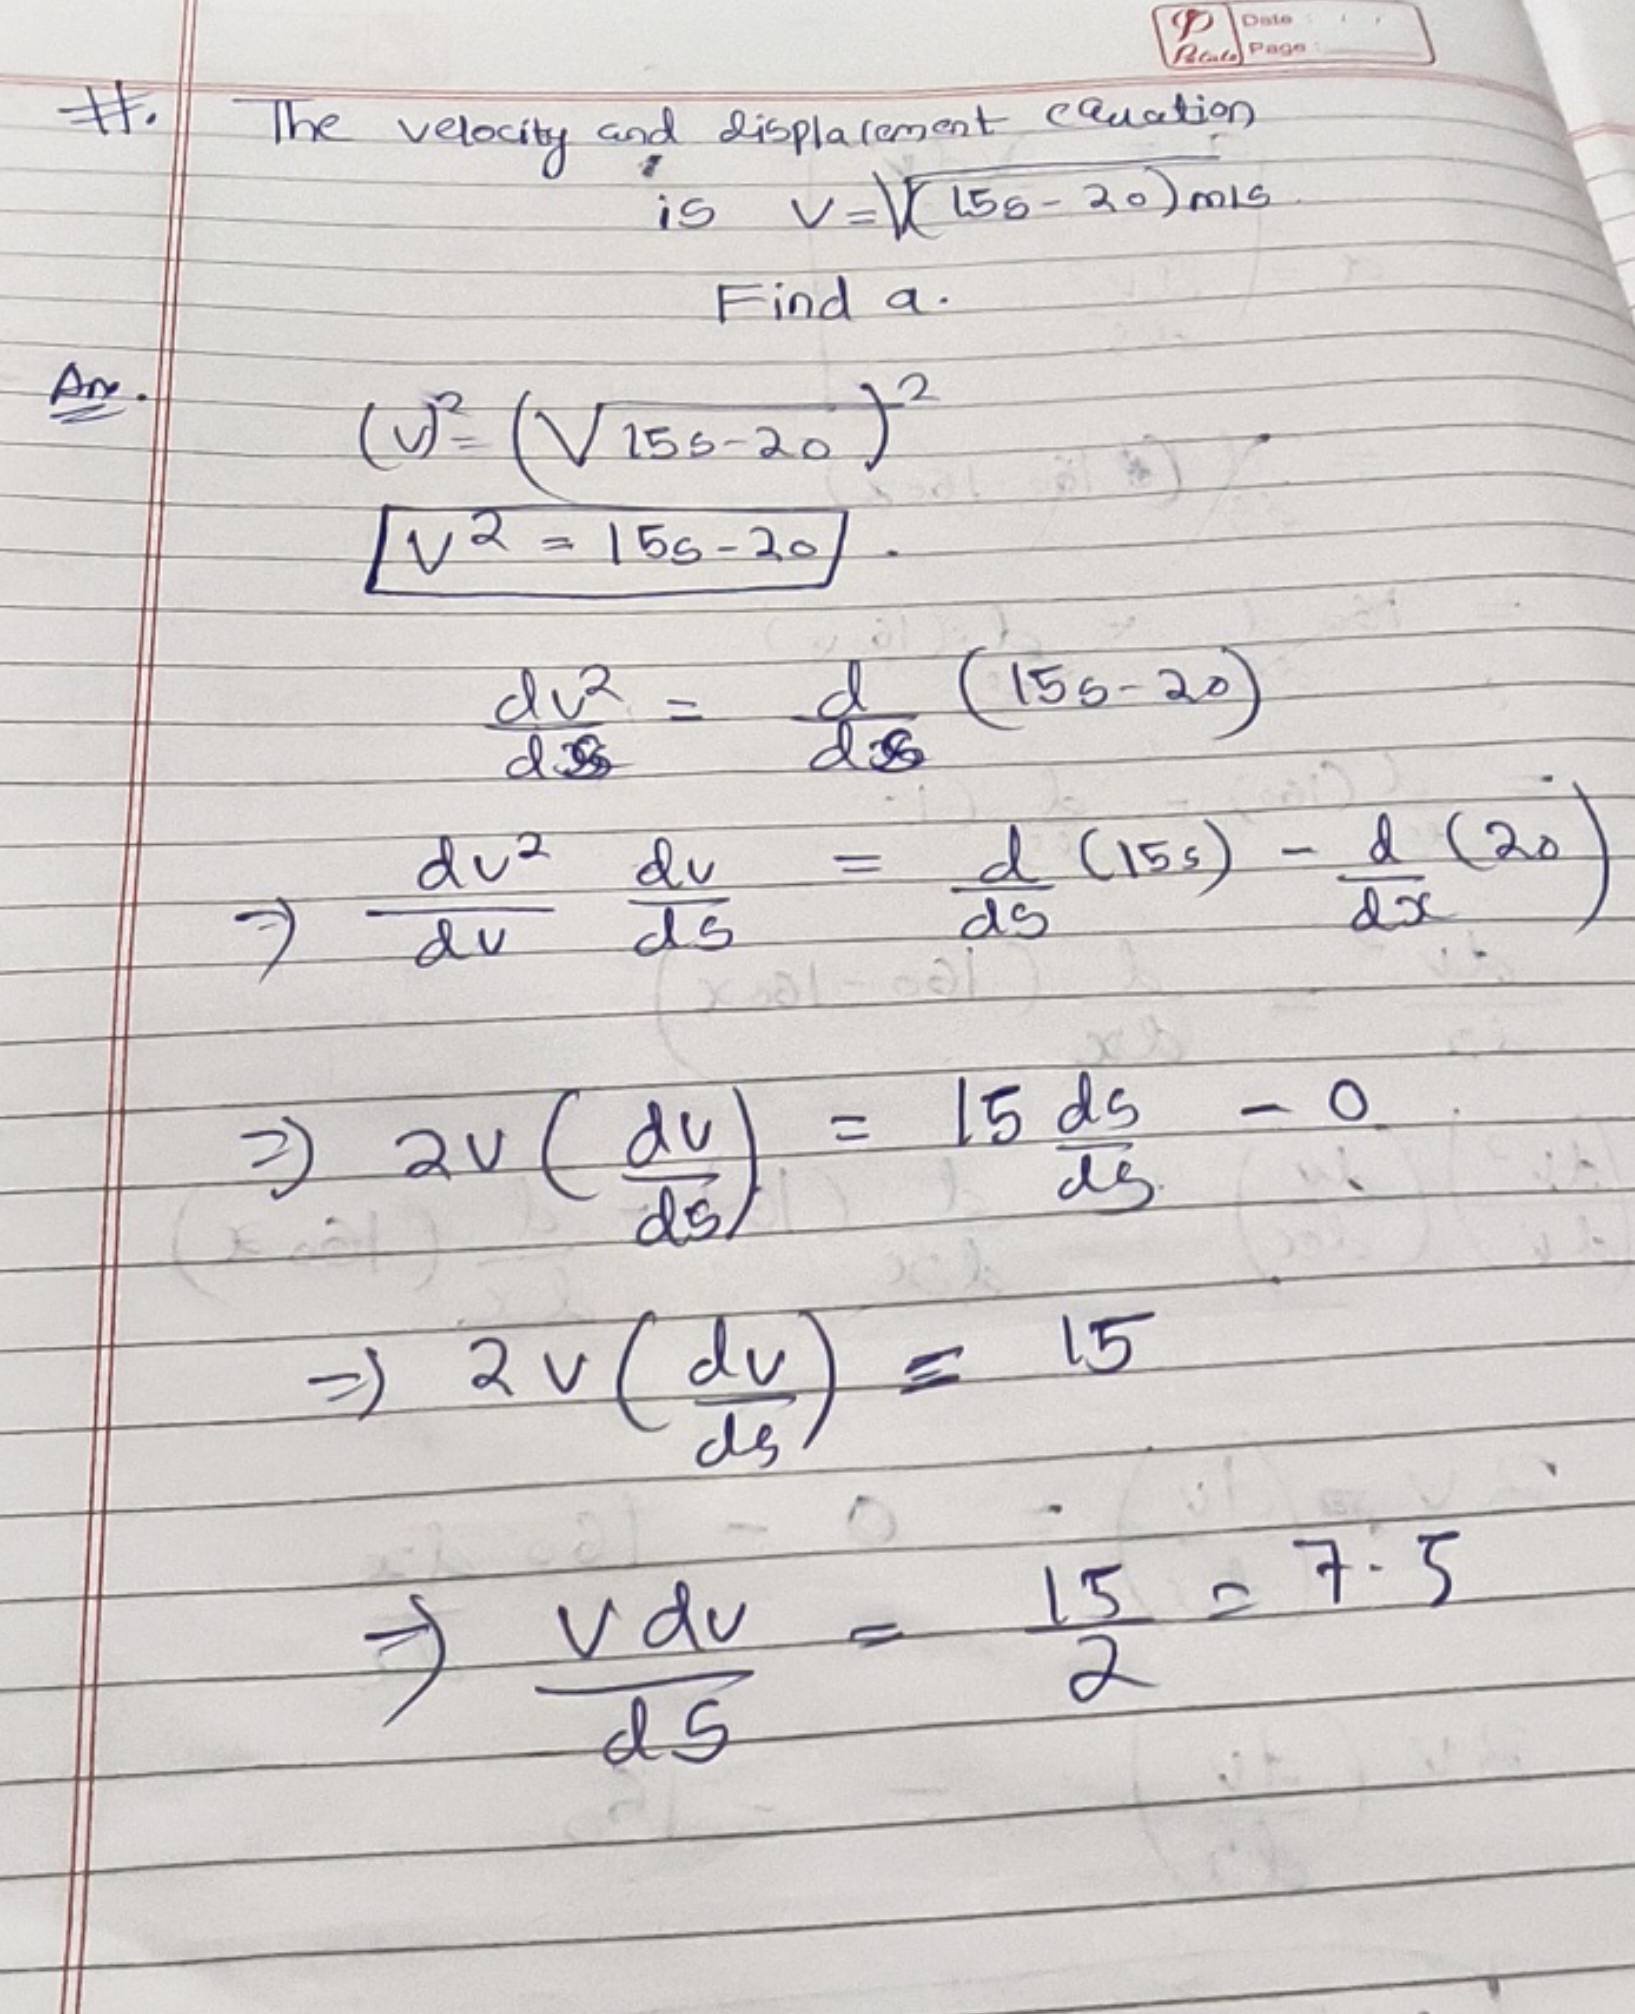 Date : , ,
Page :
#. The velocity and displacement equation
is v = √(15s - 20) m/s
Find a.
Ans. (v)² = (√15s-20)²
v² = 15s-20.
dv²/ds = d/ds (15s-20)
⇒ dv²/dv dv/ds = d/ds (15s) - d/dx (20)
⇒ 2v (dv/ds) = 15 ds/ds - 0
⇒ 2v (dv/ds) = 15
⇒ v dv/ds = 15/2 = 7.5